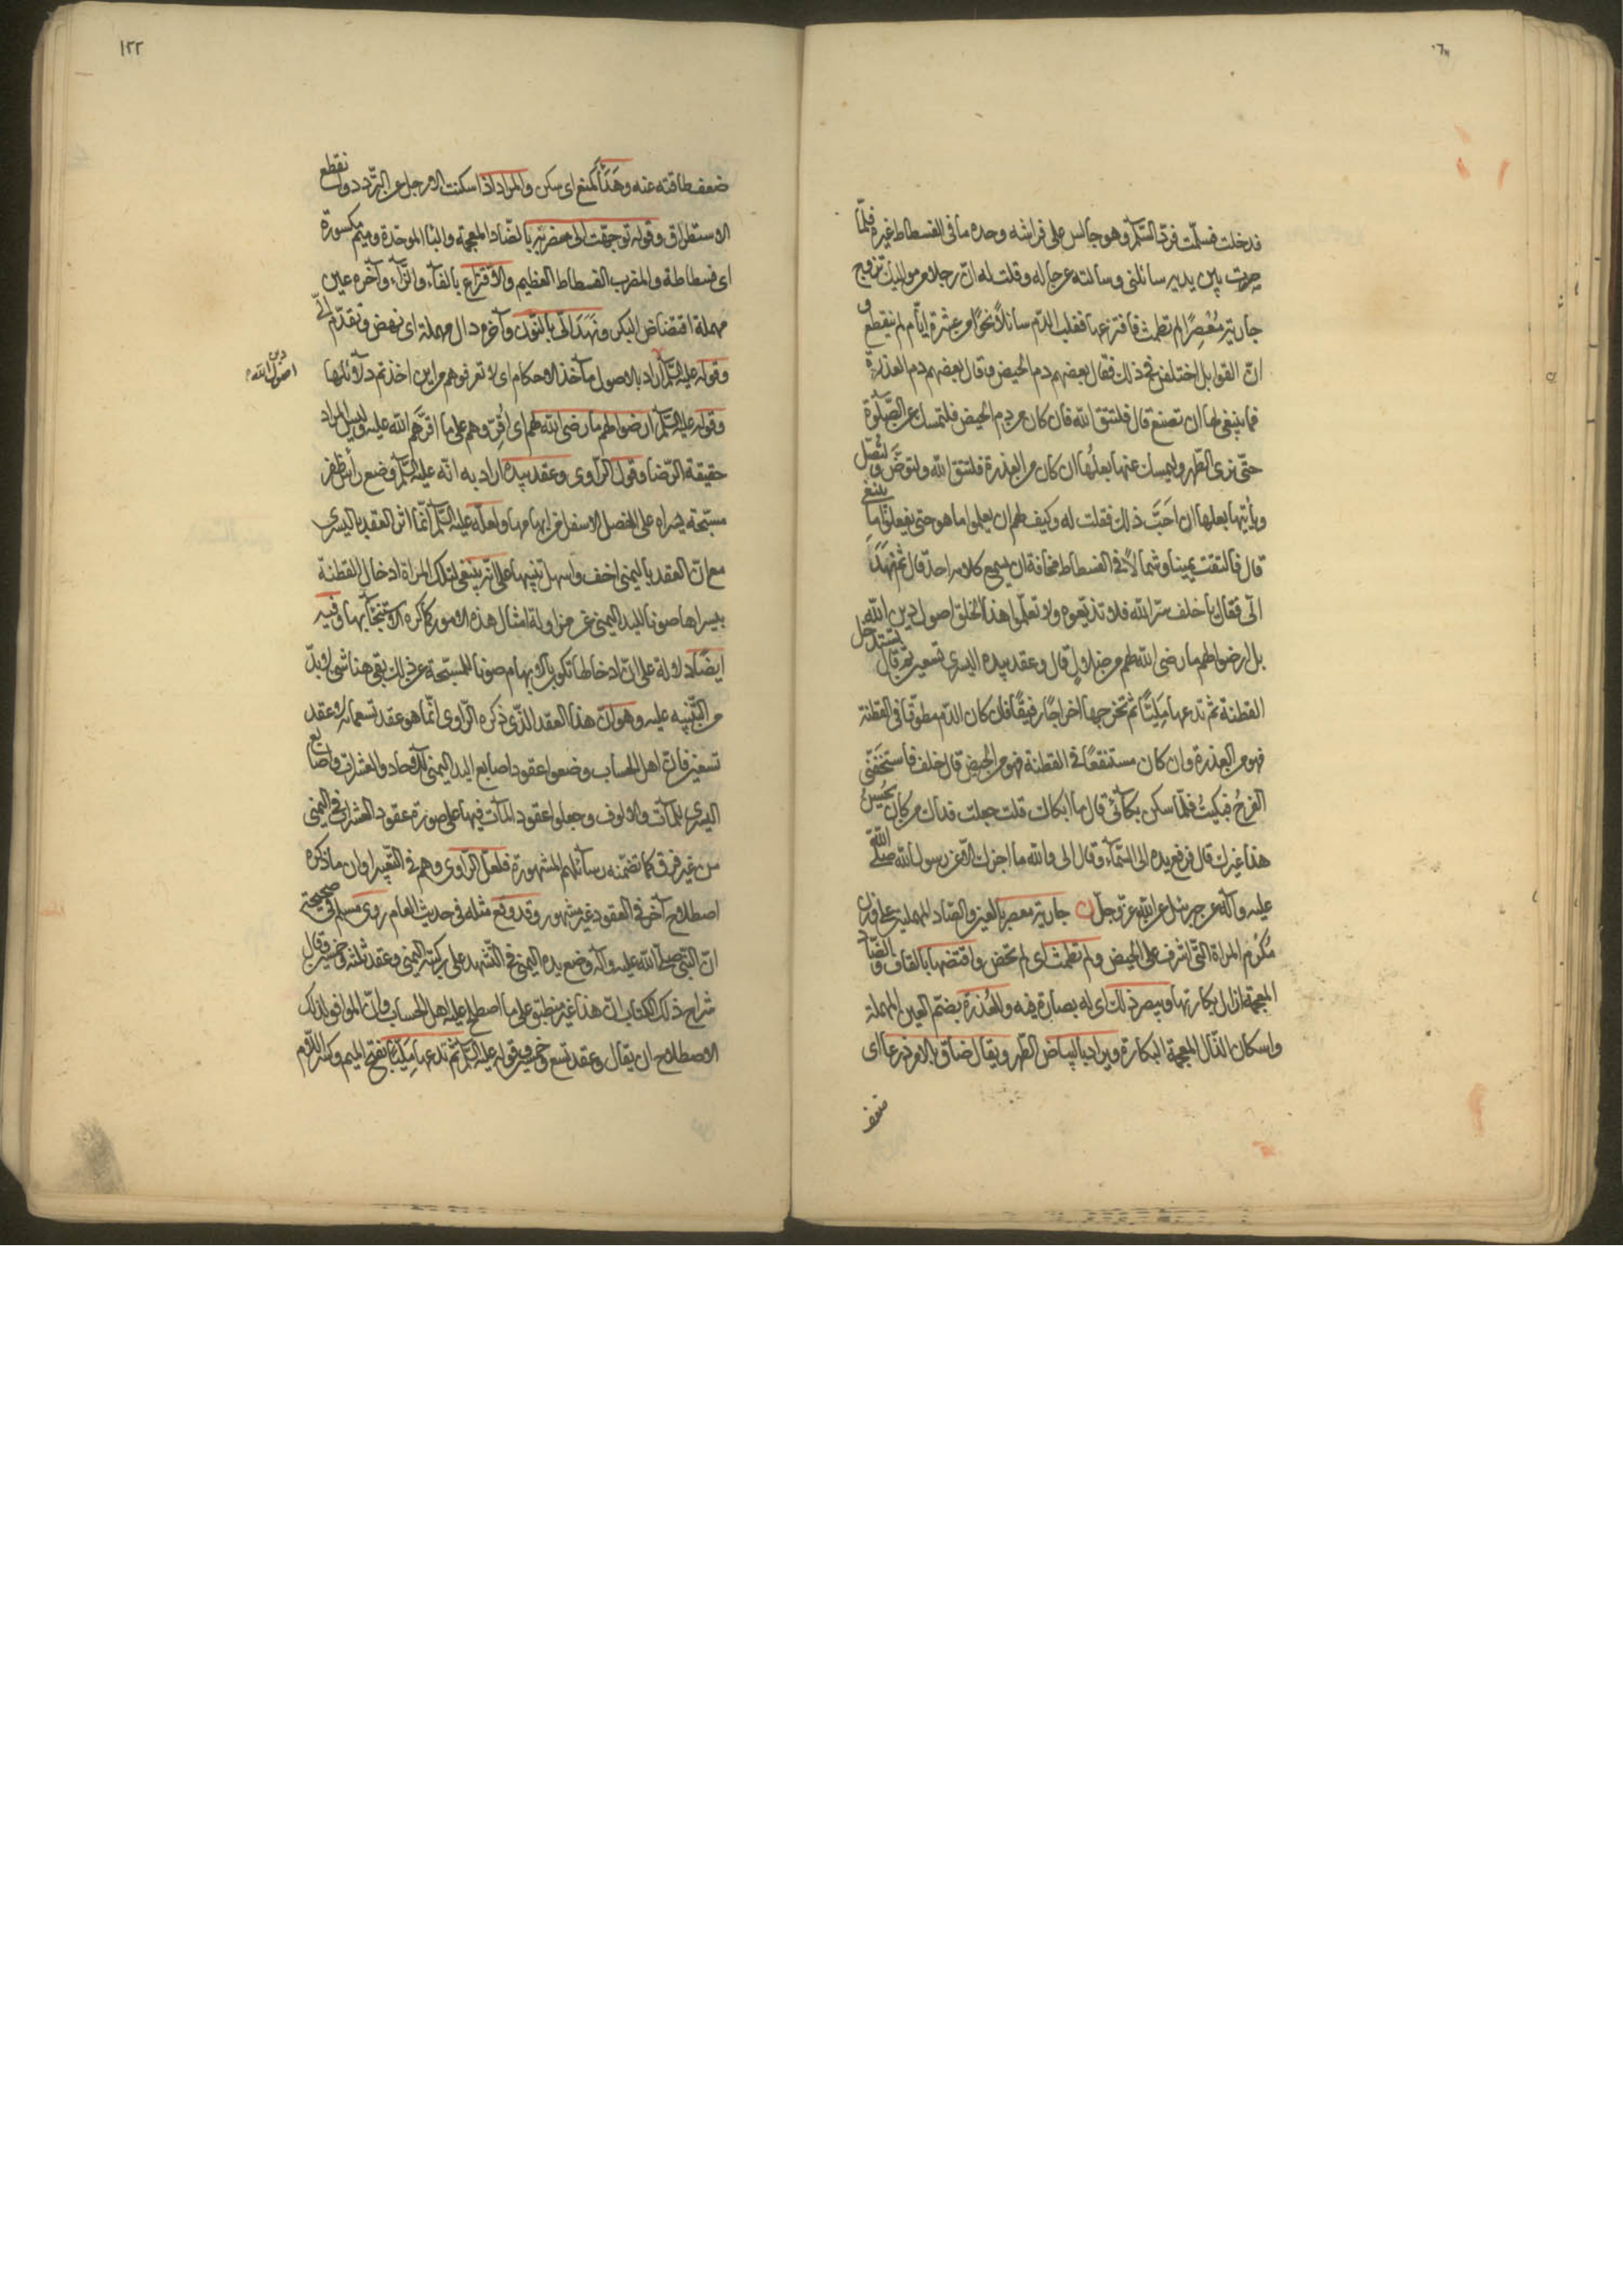 فدخلت فسلّمت فردّ السّلم وهو جالس على فراشه وحده ما فى الفسطاط غيره فلمّا
صرت بين يديه سائلنى وسالته عن حاله وقلت له انّ رجلا من مواليك تزوج
جارية مُعْصِرًا لم تطمث فافترعها فغلب الدّم سائلاً نحوًا من عشرة ايّام لم ينقطع و
انّ القوابل اختلفن فى ذلك فقال بعضهم دم الحيض وقال بعضهم دم العذرة
فما ينبغى لها ان تصنع قال فلتتّق الله فان كان من دم الحيض فلتمسك عن الصّلوة
حتّى ترى الطّهر وليمسك عنها بعلها وان كان من العذرة فلتتّق الله ولتوضّ ولتُصلّ
ويأتيها بعلها ان احَبَّ ذلك فقلت له وكيف لهم ان يعلموا ما هو حتى يفعلوا ما ينبغى
قال فالتفت يمينا وشمالاً فى الفسطاط مخافة ان يسمع كلامه احد قال ثم نهَدَ
الىّ فقال يا خلف سرّ الله فلا تذيعوه ولا تعلّموا هذا الخلق اصول دين الله
بل ارضوا لهم ما رضى الله لهم من ضلال قال وعقد بيده اليسرى تسعين ثم قال تستدخل
القطنة ثم تدعها مَلِيًّا ثم تخرجها اخراجًا رفيقًا فان كان الدّم مطوّقا فى القطنة
فهو من العذرة وان كان مستنقعًا فى القطنة فهو من الحيض قال خلف فاستخفّنى
الفرحُ فبكيتُ فلمّا سكن بكآئى قال ما ابكاك قلت جعلت فداك من كان يُحسِنُ
هذا غيرك قال فرفع يده الى السّمآء وقال انى والله ما اخبرك الّا عن رسول الله صلّى الله
عليه وآله عن جبرئيل عن الله عزّ وجلّ جارية معصر بالعين والصّاد المهملتين على وزن
مُكرم المراة الّتى اشرفت على الحيض ولم تطمث اى لم تحض واقتضها بالقاف والضّاد
المعجمة ازال بكارتها ويبصر ذلك اى له بصارة فيه والعُذرة بضمّ العين المهملة
واسكان الذّال المعجمة البكارة ويراد بالبياض الطّهر ويقال ضاق بالامر ذرعا اى
ضعف
١٢٢
ضعف طاقته عنه وهَدَأ كمنع اى سكن والمراد اذا سكنت الارجل عن التّردد وانقطع
الاستطراق وقوله توجهت الى مضربه بالضّاد المعجمة والباء الموحّدة وميم مكسورة
اى فسطاطه والمضرب الفسطاط العظيم والافتراع بالفآء والرّآء وآخره عين
مهملة افتضاض البكر ونَهَدَ الىّ بالنّون وآخره دال مهملة اى نهض وتقدّم الىّ
وقوله عليه السّلم اراد بالاصول مآخذ الاحكام اى لا تعرفوهم من اين اخذتم دلائلها
دين
اصول الله
وقوله عليه السّلم ارضوا لهم ما رضى الله لهم اى اقِرّوهم على ما اقرّهم الله عليه وليس المراد
حقيقة الرّضا وقول الرّاوى وعقد بيده اراد به انّه عليه السّلم وضع رأس ظفر
مسبّحة يسراه على المفصل الاسفل من ابهامها ولعلّه عليه السّلم انّما اثر العقد باليسرى
مع انّ العقد باليمنى اخف واسهل تنبيها على انّه ينبغى لتلك المراة ادخال القطنة
بيسراها صونا لليد اليمنى عن مزاولة امثال هذه الامور كما كره الاستنجآء بها وفيه
ايضًا دلالة على انّ ادخالها تكون بالابهام صونا للمسبّحة عن ذلك بقى هنا شى لابدّ
من التّنبيه عليه وهو انّ هذا العقد الّذى ذكره الرّاوى انّما هو عقد تسعمائة لا عقد
تسعين فانّ اهل الحساب وضعوا عقود اصابع اليد اليمنى للآحاد والعشرات واصابع
اليسرى للمآت والالوف وجعلوا عقود المآت فيها على صورة عقود العشرات فى اليمنى
من غير فرق كما تضمّنته رسائلهم المشهورة فلعلّ الرّاوى وهم فى التّعبير او ان ما ذكره
اصطلاح آخر فى العقود غير مشهور وقد وقع مثله فى حديث العامة روى مسلم فى صحيحه
انّ النّبى صلّى الله عليه وآله وضع يده اليمنى فى التّشهد على ركبته اليمنى وعقد ثلثة وخمسين وقال
شراح ذلك الكتاب انّ هذا غير منطبق على ما اصطلح عليه اهل الحساب وانّ الموافق لذلك
الاصطلاح ان يقال وعقد تسع وخمسين قوله عليه السّلم ثم تدعها مَلِيًّا بفتح الميم وكسر اللّام